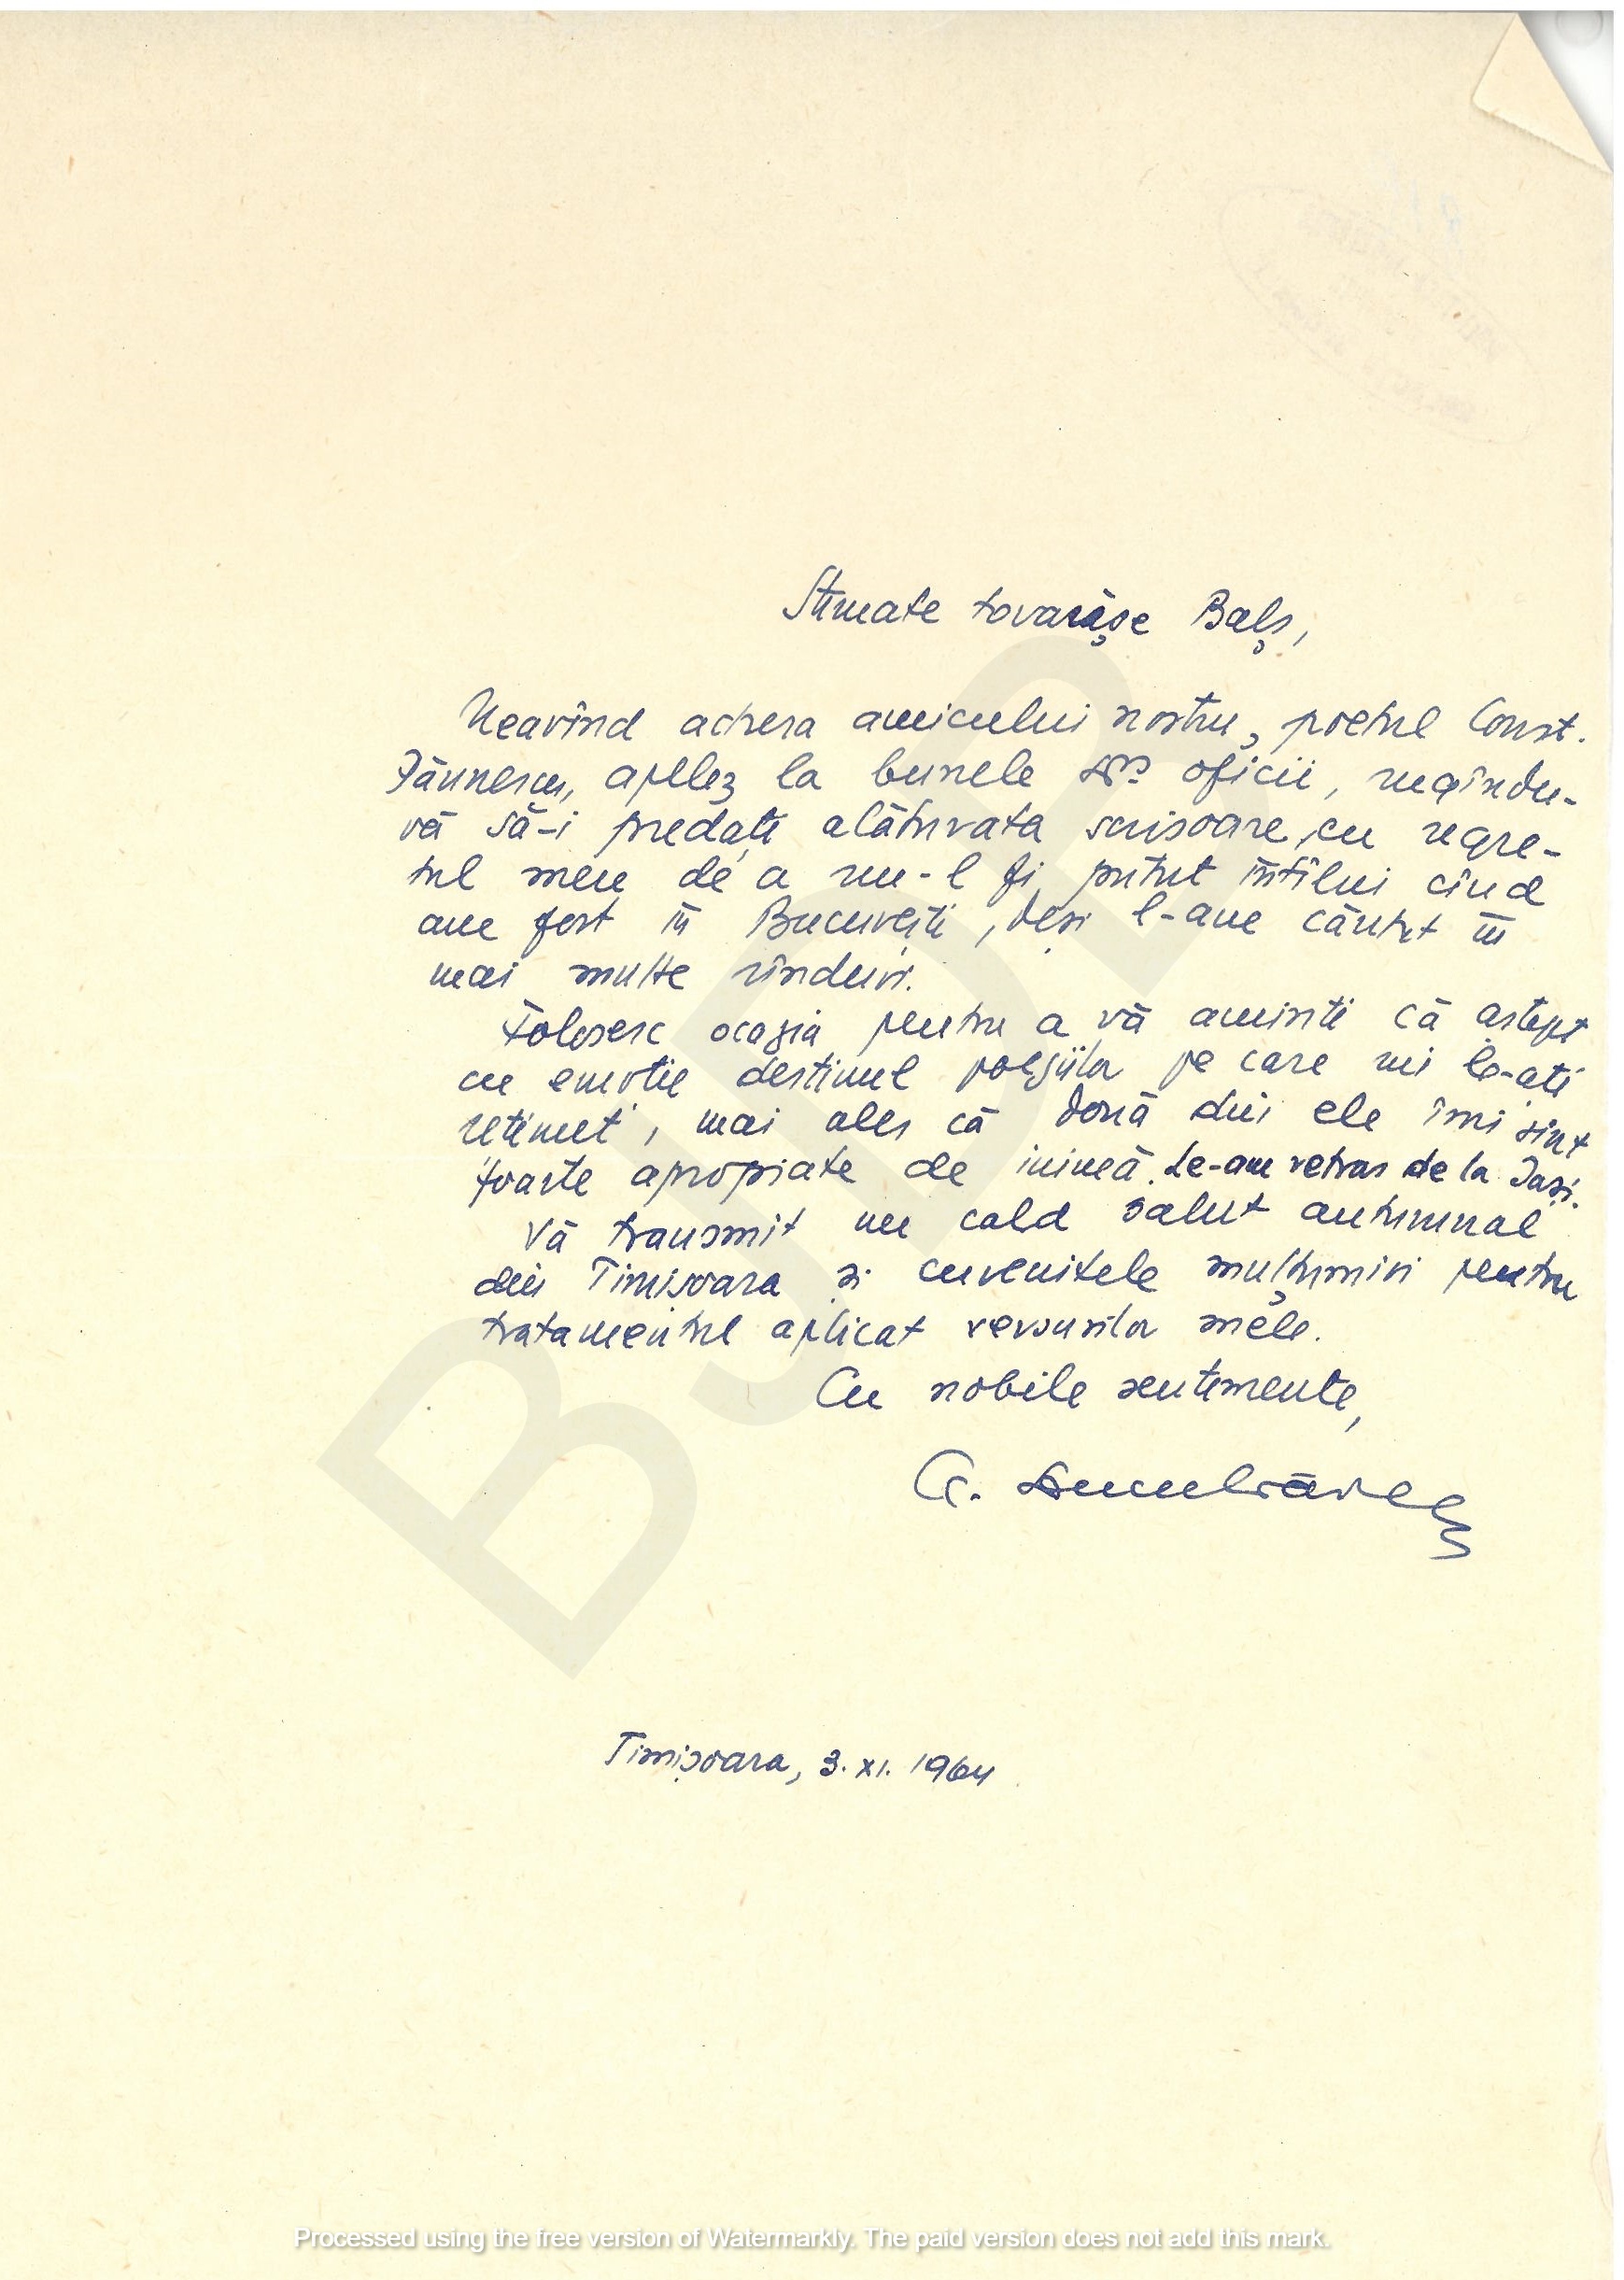 Stimate tovarășe Balș,
Neavînd adresa amicului nostru, poetul Const.
apelez la bunele dvs oficii, rugîndu-
vă să-i predați alăturata scrisoare, cu regre-
tul meu de a nu-l fi putut întîlni cînd
am fost în București, deși l-am căutat în
mai multe rînduri.
Folosesc ocazia pentru a vă aminti că aștept
cu emoție destinul poeziilor pe care mi le-ați
reținut, mai ales că două din ele îmi sînt
foarte apropiate de inimă. Le-am retras de la Iași.
Vă transmit un cald salut autumnal
din Timișoara și cuvenitele mulțumiri pentru
tratamentul aplicat versurilor mele.
Cu nobile sentimente,
Timișoara, 3. XI. 1964
BJDB
Processed using the free version of Watermarkly. The paid version does not add this mark.